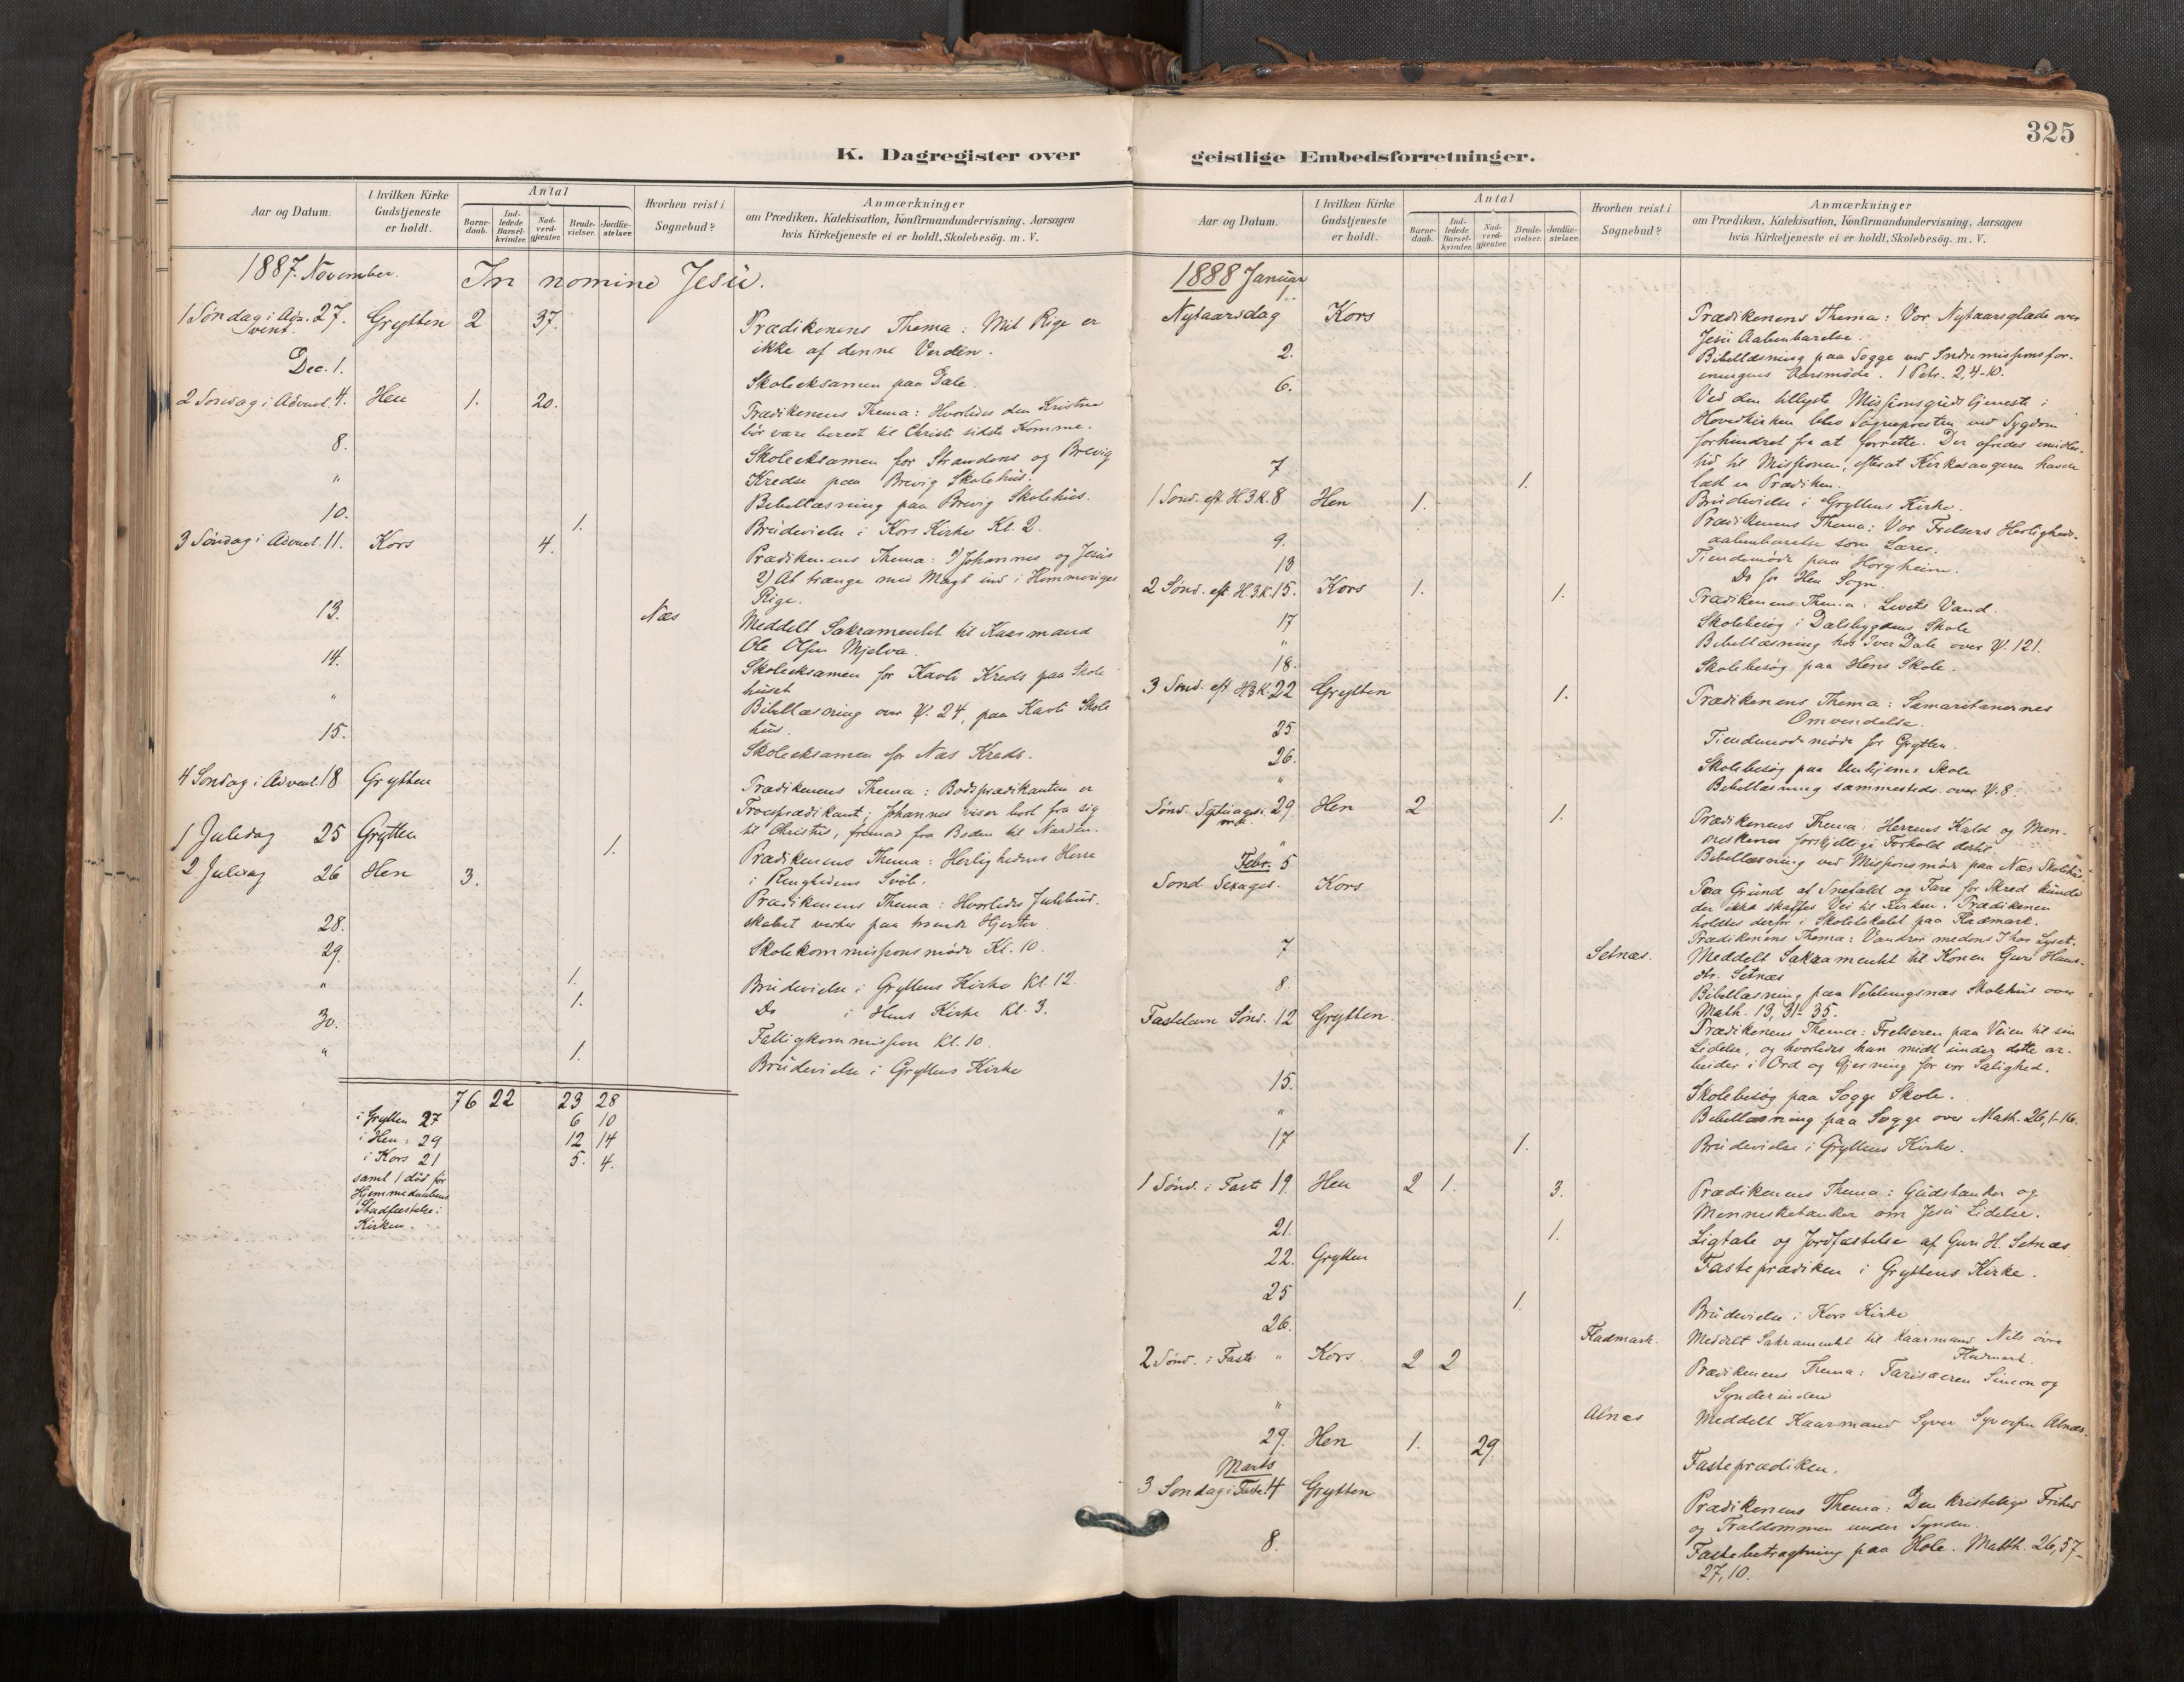 325
K. Dagregister over
geistlige Embedsforretninger.
Aar og Datum.
I hvilken Kirke Gudstjeneste er holdt.
Antal
Barne-daab.
Ind-ledede Barsel-kvinder.
Nad-verd-gjester.
Brude-vielser.
Jordfæ-stelser.
Hvorhen reist i Sognebud?
Anmærkninger
om Prædiken, Katekisation, Konfirmandundervisning, Aarsagen
hvis Kirketjeneste ei er holdt, Skolebesög. m. V.
1887. November. In nomine Jesu.
1 Søndag i Advent. 27. Grytten 2 37. Prædikenens Thema: Mit Rige er
ikke af denne Verden.
Dec. 1. Skoleeksamen paa Dale.
2 Søndag i Advent. 4. Hen 1. 20. Prædikenens Thema: Hvorledes den Kristne
bör være beredt til Christi sidste Komme.
8. Skoleeksamen for Strandens og Brevig
Kredse paa Brevig Skolehus.
" Bibellæsning paa Brevig Skolehus.
10. 1. Brudevielse i Kors Kirke Kl. 2.
3 Søndag i Advent. 11. Kors 4. Prædikenens Thema: 1) Johannes og Jesus
2) At trænge med Magt ind i Himmeriges
Rige.
13. Næs Meddelt Sakramentet til Kaarmand
Ole Olsen Mjelva.
14. Skoleeksamen for Kavli Kreds paa Skole
huset
" Bibellæsning over Ψ. 24, paa Kavli Skole
hus.
15. Skoleeksamen for Næs Kreds.
4 Søndag i Advent. 18 Grytten Prædikenens Thema: Bodsprædikanten er
Troesprædikant; Johannes viser bort fra sig
til Christus, fremad fra Boden til Naaden.
1 Juledag 25 Grytten 1. Prædikenens Thema: Herlighedens Herre
i Ringhedens Svöb.
2 Juledag 26 Hen 3. Prædikenens Thema: Hvorledes Julebud-
skabet virker paa troende Hjerter
28. Skolekommissionsmöde Kl. 10.
29. 1. Brudevielse i Gryttens Kirke Kl. 12.
" 1. Do i Hens Kirke Kl. 3.
30. Fattigkommission Kl. 10.
" 1. Brudevielse i Gryttens Kirke
76 22 23 28
i Grytten 27 6 10
i Hen: 29 12 14
i Kors 21 5. 4.
samt 1 död för
Hjemmedaabens
Stadfæstelse i
Kirken.
Aar og Datum.
I hvilken Kirke Gudstjeneste er holdt.
Antal
Barne-daab.
Ind-ledede Barsel-kvinder.
Nad-verd-gjester.
Brude-vielser.
Jordfæ-stelser.
Hvorhen reist i Sognebud?
Anmærkninger
om Prædiken, Katekisation, Konfirmandundervisning, Aarsagen
hvis Kirketjeneste ei er holdt, Skolebesög. m. V.
1888 Januar
1.
Nytaarsdag Kors Prædikenens Thema: Vor Nytaarsglæde over
Jesu Aabenbarelse.
2. Bibellæsning paa Sogge ved Indremissionsfor-
eningens Aarsmöde. 1 Petr. 2, 4-10.
6. Ved den tillyste Missionsgudstjeneste i
Hovedkirken blev Sognepresten ved Sygdom
forhindret fra at forrette. Der ofredes imidler-
tid til Missionen, efterat Kirkesangeren havde
læst en Prædiken.
7 1. Brudevielse i Gryttens Kirke.
1 Sønd. eft. H3K. 8 Hen 1. Prædikenens Thema: Vor Frelsers Herligheds-
aabenbarelse som Lærer.
9. Tiendemöde paa Horgheim.
13 Do for Hen Sogn.
2 Sønd. eft. H.3.K. 15. Kors 1. 1. Prædikenens Thema: Livets Vand.
17 Skolebesög i Dalsbygdens Skole
" Bibellæsning hos Iver Dale over Ψ. 121.
18. Skolebesög paa Hens Skole.
3 Sønd. eft. H3K. 22 Grytten 1. Prædikenens Thema: Samaritanernes
Omvendelse.
25. Tiendemöde for Grytten.
26. Skolebesög paa Unhjems Skole
" Bibellæsning sammesteds over Ψ. 8.
Sønd. Septuages. 29. Hen 2 1. Prædikenens Thema: Herrens Kald og Men-
neskenes forskjellige Forhold dertil.
" Bibellæsning ved Missionsmöde paa Næs Skolehus.
Febr. 5
Sønd. Sexages. Kors Paa Grund af Snefald og Fare for Skred kunde
der ikke skaffes Vei til Kirken. Prædikenen
holdtes derfor i Skolelokalet paa Fladmark.
Prædikenens Thema: Vandrer medens I har Lyset.
7 Setnæs. Meddelt Sakramentet til Konen Guri Hans-
dtr. Setnæs
8. Bibellæsning paa Veblungsnæs Skolehus over
Math. 13, 31-35.
Fastelavns Sønd. 12 Grytten. Prædikenens Thema: Frelseren paa Veien til sin
Lidelse, og hvorledes han midt under dette ar-
beider i Ord og Gjerning for vor Salighed.
15. Skolebesög paa Sogge Skole.
" Bibellæsning paa Sogge over Math. 26, 1-16.
17 1. Brudevielse i Gryttens Kirke.
1 Sønd. i Faste 19. Hen 2 1. 3. Prædikenens Thema: Gudstanker og
Mennesketanker om Jesu Lidelse.
21. 1. Ligtale og Jordfæstelse af Guri H. Setnæs
22. Grytten Fasteprædiken i Gryttens Kirke.
25 1. Brudevielse i Kors Kirke
26. Fladmark. Meddelt Sakramentet til Kaarmand Nils övre
Fladmark.
2 Sønd. i Faste " Kors 2 2 Prædikenens Thema: Farisæeren Simeon og
Synderinden
" Alnæs Meddelt Kaarmand Syver Syversen Alnæs.
29. Hen 1. 29. Fasteprædiken.
Marts
3 Søndag i Faste. 4 Grytten Prædikenens Thema: Den kristelige Frihed
og Trældommen under Synden.
8. Fastebetragtning paa Hole. Matth. 26, 57-
27, 10.